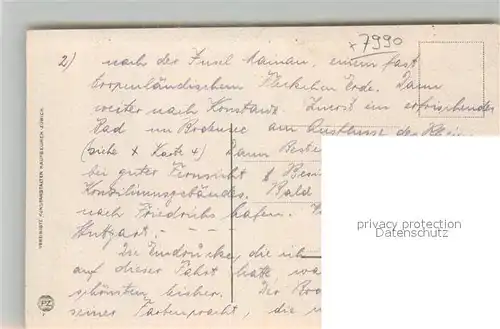 x 7990
2) nach der Insel Mainau, einem fast
tropenländischem Fleckchen Erde. Dann
weiter nach Konstanz. Zuerst ein erfrischendes
Bad im Bodensee am Ausflusse des Rhein
(siehe x Karte 4) Dann Beste
bei guter Fernsicht
Konziliumsgebäudes. Bald
nach Friedrichshafen.
Stuttgart. — —
Die Eindrücke, die ich
auf dieser Fahrt hatte, wa
schönsten bisher. Der Bo
seiner Farbenpracht, die
privacy protection
watermark
VEREINIGTE KUNSTANSTALTEN
PZ